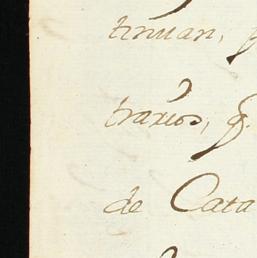 tinuan,
trarios, q.
de Cata